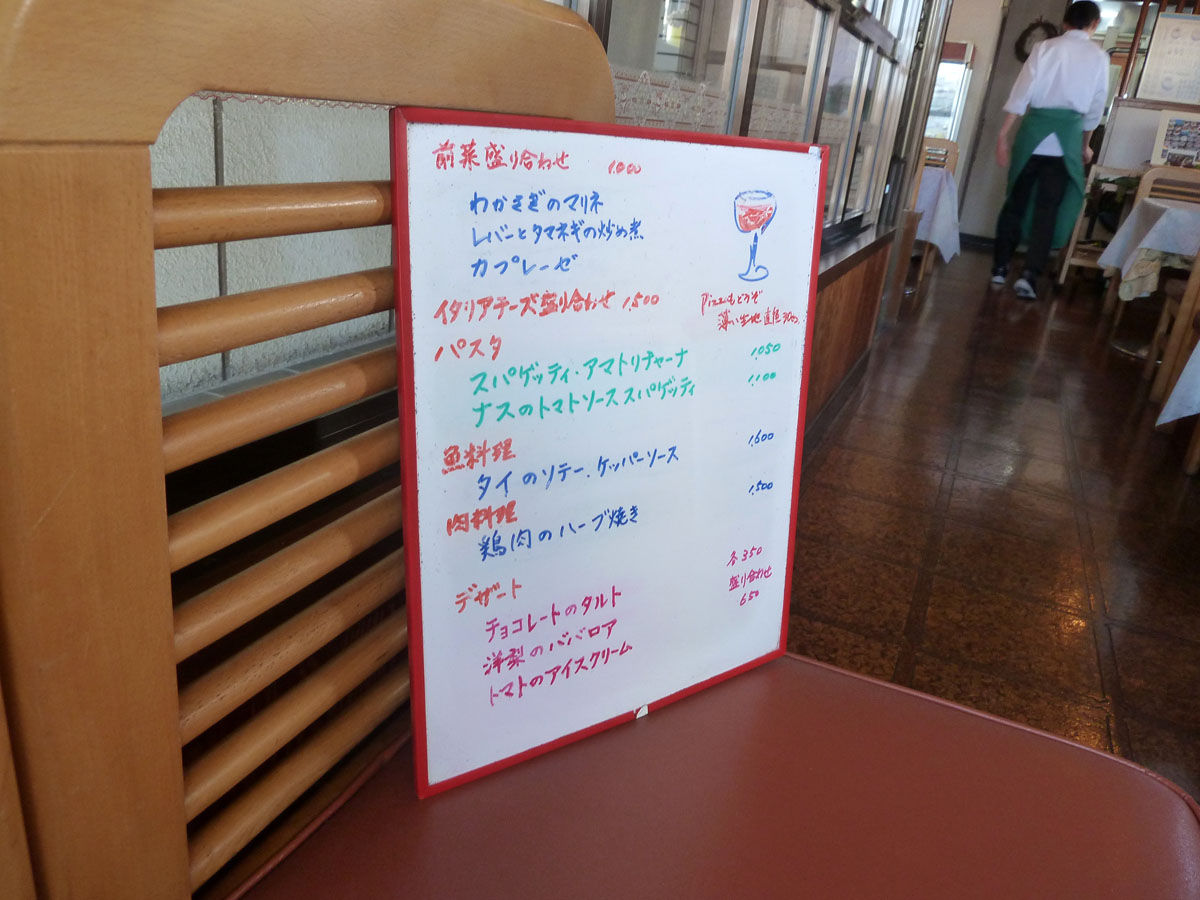 前菜盛り合わせ 1,000
わかさぎのマリネ
レバーとタマネギの炒め煮
カプレーゼ
イタリアチーズ盛り合わせ 1,500
Pizzaもどうぞ
薄い生地 直径30cm
パスタ
スパゲッティ・アマトリチャーナ 1,050
ナスのトマトソーススパゲッティ 1,100
魚料理
タイのソテー.ケッパーソース 1,600
肉料理
鶏肉のハーブ焼き 1,500
デザート
各350
盛り合わせ
650
チョコレートのタルト
洋梨のババロア
トマトのアイスクリーム